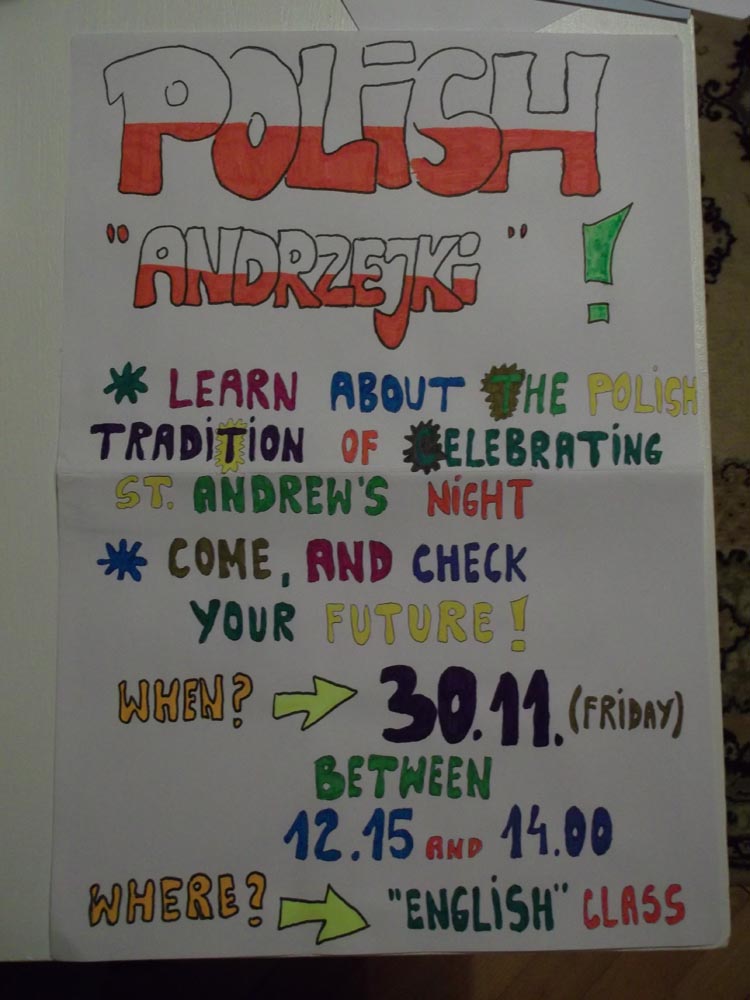 POLiSH
"ANDRZEJKi" !
* LEARN ABOUT THE POLiSH
TRADiTiON OF CELEBRATiNG
ST. ANDREW'S NiGHT
* COME, AND CHECK
YOUR FUTURE!
WHEN? → 30.11. (FRiDAY)
BETWEEN
12.15 AND 14.00
WHERE? → "ENGLiSH" CLASS